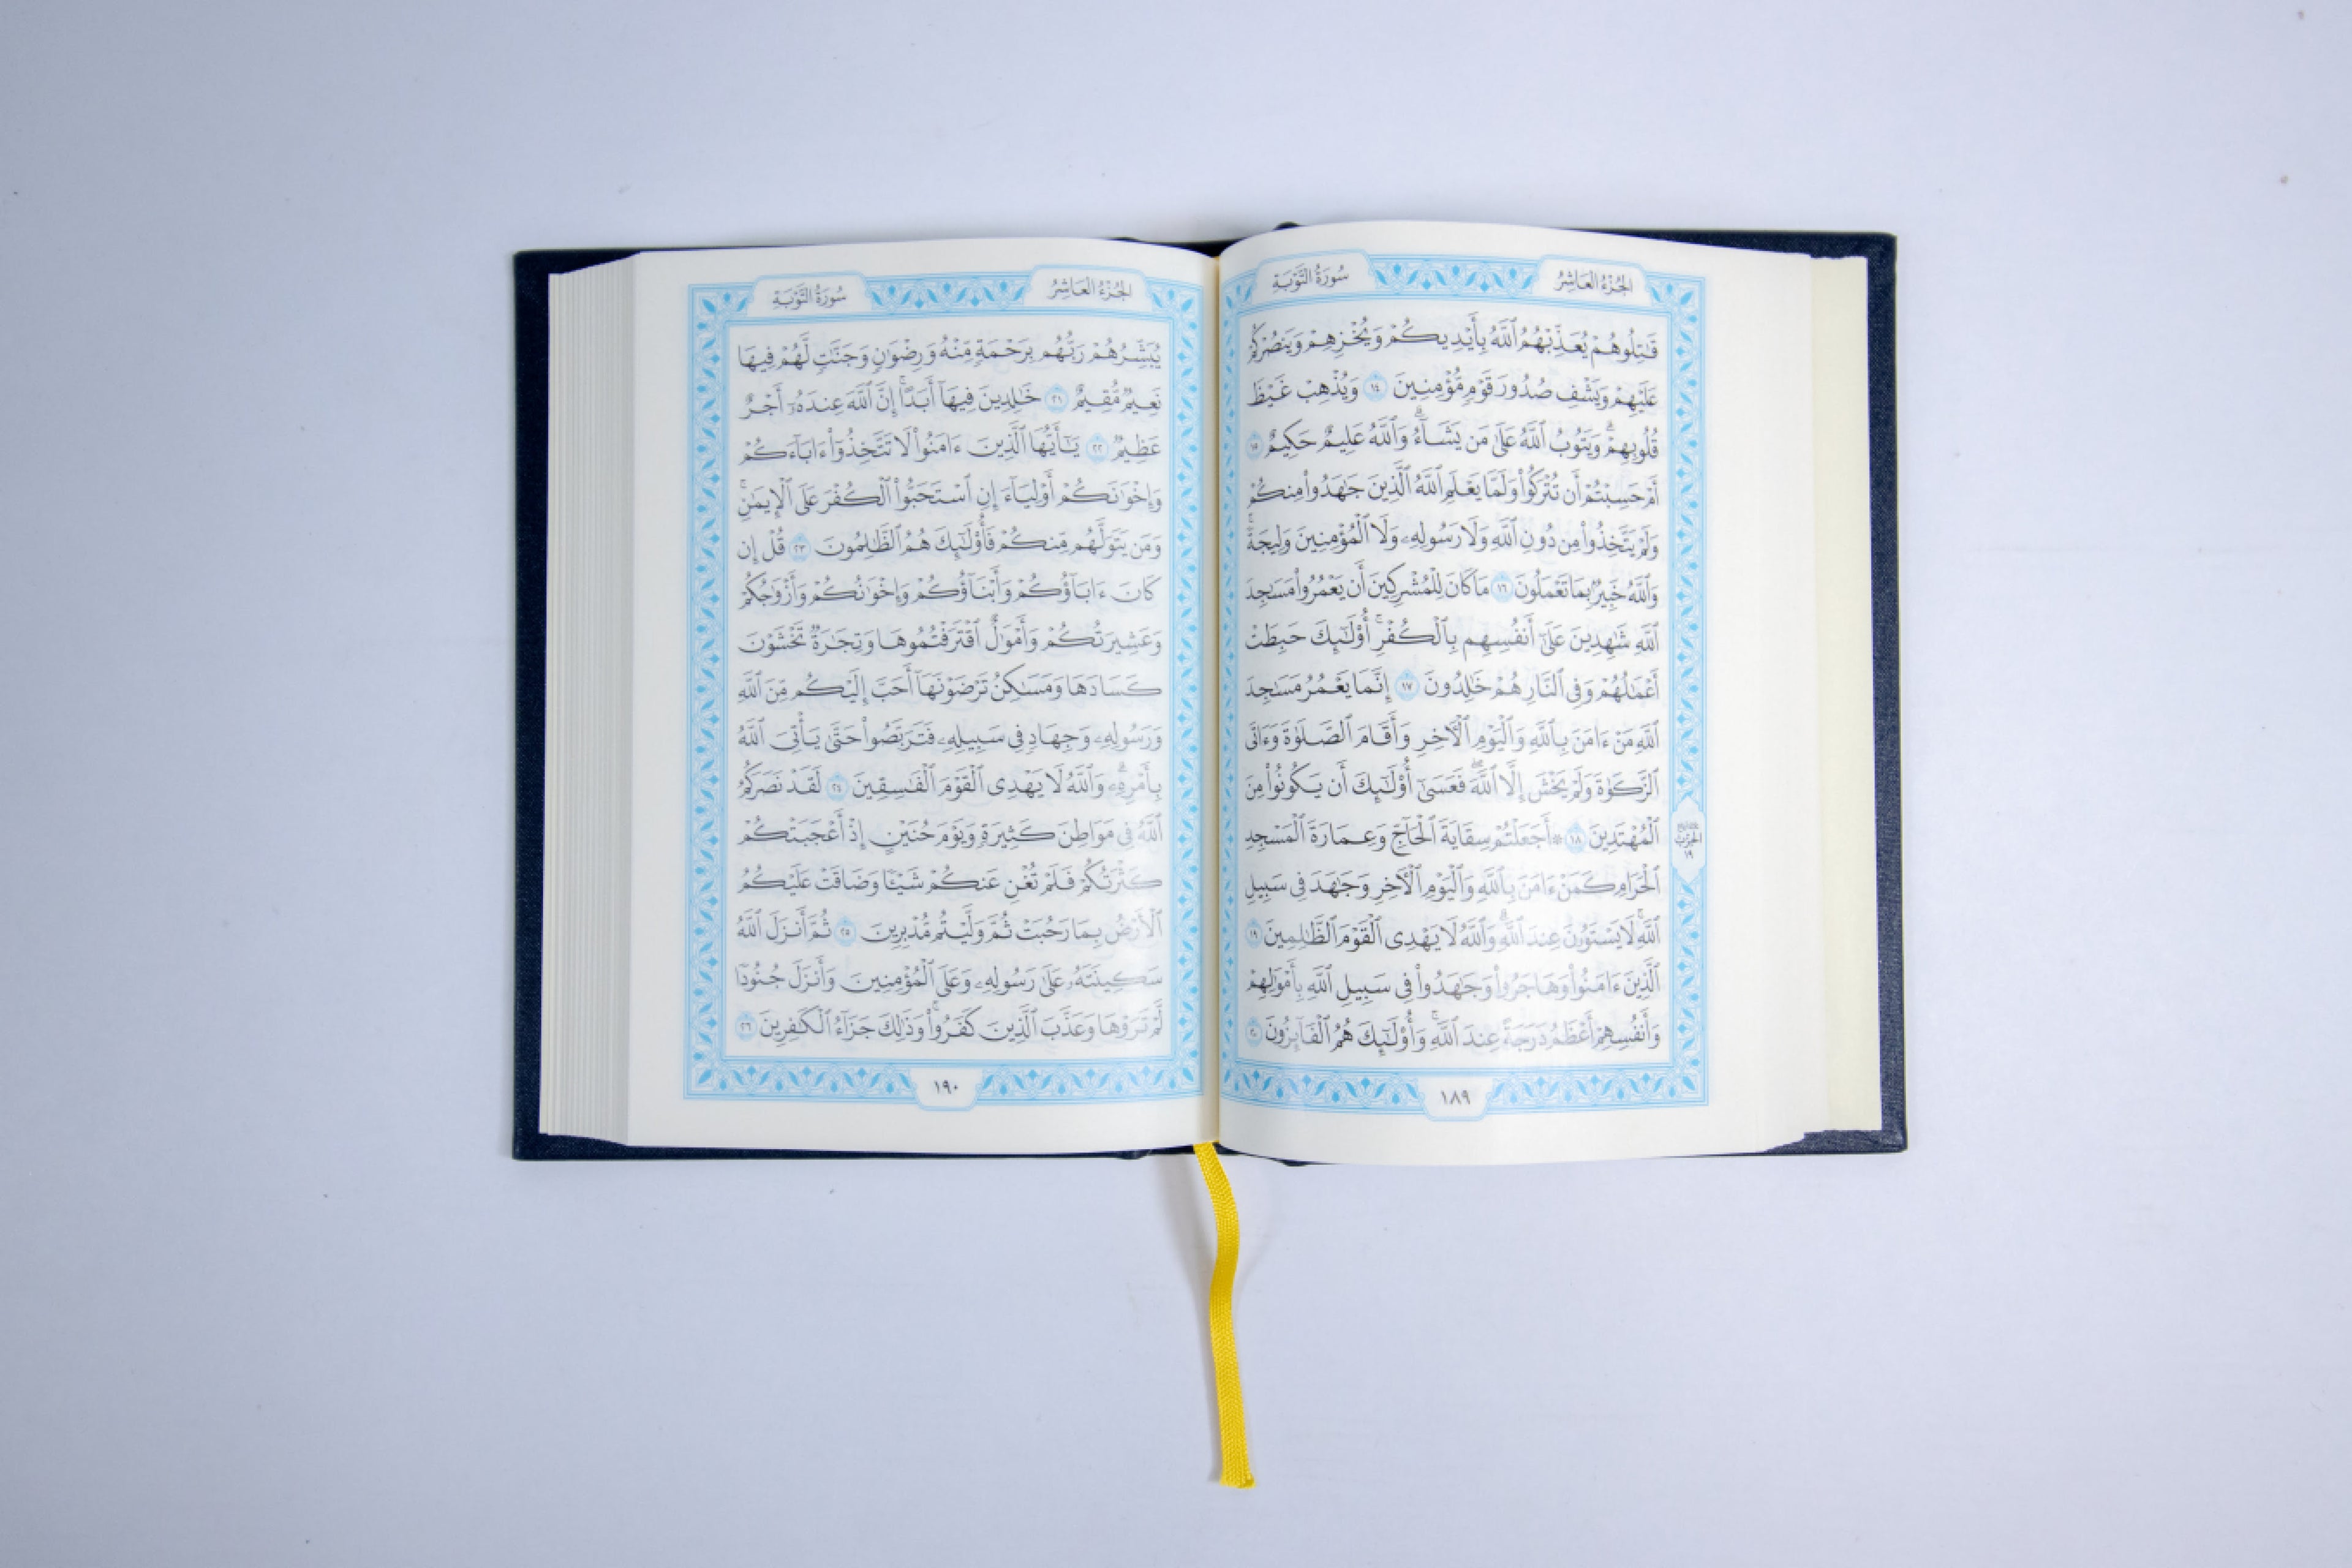 الجُزْءُ العَاشِرُ
سُورَةُ التَّوْبَةِ
قَٰتِلُوهُمْ يُعَذِّبْهُمُ ٱللَّهُ بِأَيْدِيكُمْ وَيُخْزِهِمْ وَيَنصُرْكُمْ
عَلَيْهِمْ وَيَشْفِ صُدُورَ قَوْمٍ مُّؤْمِنِينَ ١٤ وَيُذْهِبْ غَيْظَ
قُلُوبِهِمْۗ وَيَتُوبُ ٱللَّهُ عَلَىٰ مَن يَشَآءُۗ وَٱللَّهُ عَلِيمٌ حَكِيمٌ ١٥
أَمْ حَسِبْتُمْ أَن تُتْرَكُوا۟ وَلَمَّا يَعْلَمِ ٱللَّهُ ٱلَّذِينَ جَٰهَدُوا۟ مِنكُمْ
وَلَمْ يَتَّخِذُوا۟ مِن دُونِ ٱللَّهِ وَلَا رَسُولِهِۦ وَلَا ٱلْمُؤْمِنِينَ وَلِيجَةًۚ
وَٱللَّهُ خَبِيرٌۢ بِمَا تَعْمَلُونَ ١٦ مَا كَانَ لِلْمُشْرِكِينَ أَن يَعْمُرُوا۟ مَسَٰجِدَ
ٱللَّهِ شَٰهِدِينَ عَلَىٰٓ أَنفُسِهِم بِٱلْكُفْرِۚ أُو۟لَٰٓئِكَ حَبِطَتْ
أَعْمَٰلُهُمْ وَفِى ٱلنَّارِ هُمْ خَٰلِدُونَ ١٧ إِنَّمَا يَعْمُرُ مَسَٰجِدَ
ٱللَّهِ مَنْ ءَامَنَ بِٱللَّهِ وَٱلْيَوْمِ ٱلْءَاخِرِ وَأَقَامَ ٱلصَّلَوٰةَ وَءَاتَى
ٱلزَّكَوٰةَ وَلَمْ يَخْشَ إِلَّا ٱللَّهَۖ فَعَسَىٰٓ أُو۟لَٰٓئِكَ أَن يَكُونُوا۟ مِنَ
ٱلْمُهْتَدِينَ ١٨ ۞ أَجَعَلْتُمْ سِقَايَةَ ٱلْحَآجِّ وَعِمَارَةَ ٱلْمَسْجِدِ
ٱلْحَرَامِ كَمَنْ ءَامَنَ بِٱللَّهِ وَٱلْيَوْمِ ٱلْءَاخِرِ وَجَٰهَدَ فِى سَبِيلِ
ٱللَّهِۚ لَا يَسْتَوُۥنَ عِندَ ٱللَّهِۗ وَٱللَّهُ لَا يَهْدِى ٱلْقَوْمَ ٱلظَّٰلِمِينَ ١٩
ٱلَّذِينَ ءَامَنُوا۟ وَهَاجَرُوا۟ وَجَٰهَدُوا۟ فِى سَبِيلِ ٱللَّهِ بِأَمْوَٰلِهِمْ
وَأَنفُسِهِمْ أَعْظَمُ دَرَجَةً عِندَ ٱللَّهِۚ وَأُو۟لَٰٓئِكَ هُمُ ٱلْفَآئِزُونَ ٢٠
الحزب
١٩
١٨٩
الجُزْءُ العَاشِرُ
سُورَةُ التَّوْبَةِ
يُبَشِّرُهُمْ رَبُّهُم بِرَحْمَةٍ مِّنْهُ وَرِضْوَٰنٍ وَجَنَّٰتٍ لَّهُمْ فِيهَا
نَعِيمٌ مُّقِيمٌ ٢١ خَٰلِدِينَ فِيهَآ أَبَدًاۚ إِنَّ ٱللَّهَ عِندَهُۥٓ أَجْرٌ
عَظِيمٌ ٢٢ يَٰٓأَيُّهَا ٱلَّذِينَ ءَامَنُوا۟ لَا تَتَّخِذُوٓا۟ ءَابَآءَكُمْ
وَإِخْوَٰنَكُمْ أَوْلِيَآءَ إِنِ ٱسْتَحَبُّوا۟ ٱلْكُفْرَ عَلَى ٱلْإِيمَٰنِۚ
وَمَن يَتَوَلَّهُم مِّنكُمْ فَأُو۟لَٰٓئِكَ هُمُ ٱلظَّٰلِمُونَ ٢٣ قُلْ إِن
كَانَ ءَابَآؤُكُمْ وَأَبْنَآؤُكُمْ وَإِخْوَٰنُكُمْ وَأَزْوَٰجُكُمْ
وَعَشِيرَتُكُمْ وَأَمْوَٰلٌ ٱقْتَرَفْتُمُوهَا وَتِجَٰرَةٌ تَخْشَوْنَ
كَسَادَهَا وَمَسَٰكِنُ تَرْضَوْنَهَآ أَحَبَّ إِلَيْكُم مِّنَ ٱللَّهِ
وَرَسُولِهِۦ وَجِهَادٍ فِى سَبِيلِهِۦ فَتَرَبَّصُوا۟ حَتَّىٰ يَأْتِىَ ٱللَّهُ
بِأَمْرِهِۦۗ وَٱللَّهُ لَا يَهْدِى ٱلْقَوْمَ ٱلْفَٰسِقِينَ ٢٤ لَقَدْ نَصَرَكُمُ
ٱللَّهُ فِى مَوَاطِنَ كَثِيرَةٍ وَيَوْمَ حُنَيْنٍ إِذْ أَعْجَبَتْكُمْ
كَثْرَتُكُمْ فَلَمْ تُغْنِ عَنكُمْ شَيْـًٔا وَضَاقَتْ عَلَيْكُمُ
ٱلْأَرْضُ بِمَا رَحُبَتْ ثُمَّ وَلَّيْتُم مُّدْبِرِينَ ٢٥ ثُمَّ أَنزَلَ ٱللَّهُ
سَكِينَتَهُۥ عَلَىٰ رَسُولِهِۦ وَعَلَى ٱلْمُؤْمِنِينَ وَأَنزَلَ جُنُودًا
لَّمْ تَرَوْهَا وَعَذَّبَ ٱلَّذِينَ كَفَرُوا۟ۚ وَذَٰلِكَ جَزَآءُ ٱلْكَٰفِرِينَ ٢٦
١٩٠